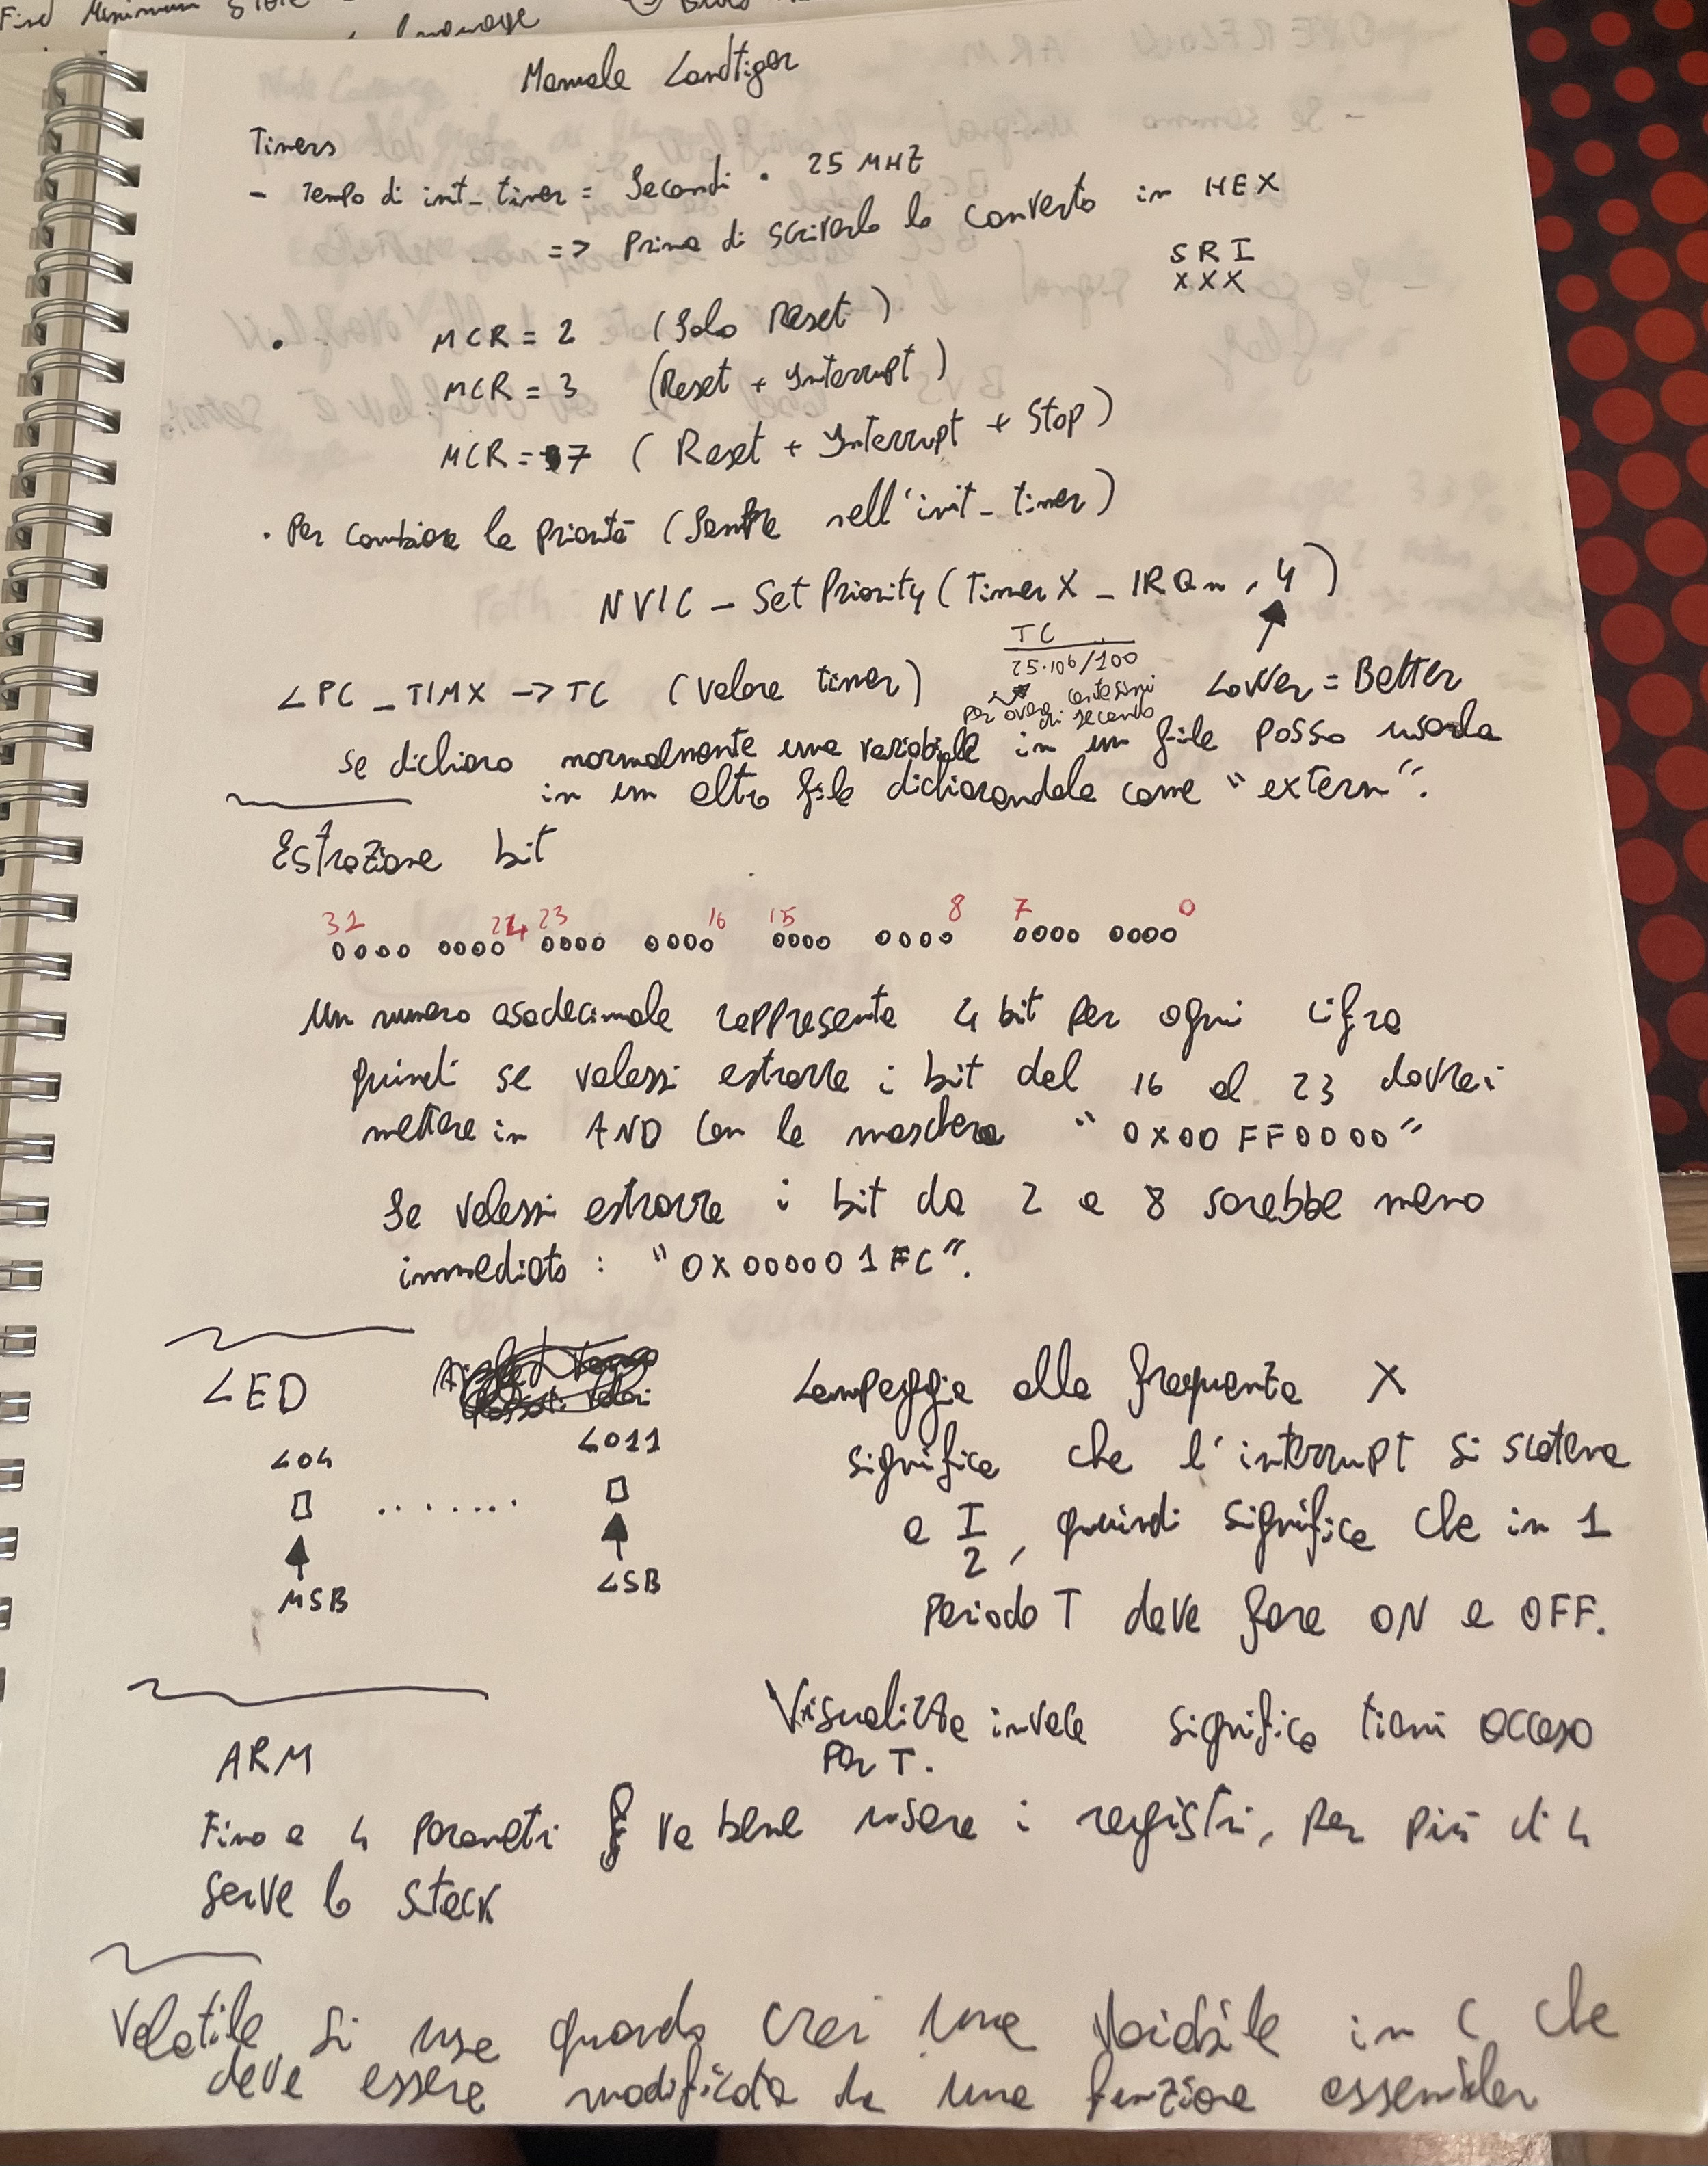 Find Minimum State
language
Manuale Landtiger
Timers
- Tempo di init_timer = Secondi · 25 MHZ
=> Prima di scriverlo lo converto in HEX
SRI
XXX
· MCR = 2 (Solo Reset)
MCR = 3 (Reset + Interrupt)
MCR = 7 (Reset + Interrupt + Stop)
· Per cambiare la priorità (Sempre nell'init_timer)
NVIC_SetPriority(TimerX_IRQn, 4)
TC
25·10⁶/100
per avere centesimi
di secondo
Lower = Better
LPC_TIMX -> TC (valore timer)
se dichiaro normalmente una variabile in un file posso usarla
in un altro file dichiarandola come "extern".
Estrazione bit
31 24 23 16 15 8 7 0
0000 0000 0000 0000 0000 0000 0000 0000
Un numero esadecimale rappresenta 4 bit per ogni cifra
quindi se volessi estrarre i bit del 16 al 23 dovrei
mettere in AND con la maschera "0X00FF0000"
Se volessi estrarre i bit da 2 a 8 sarebbe meno
immediato : "0X000001FC".
LED
LD4 LD11
.......
MSB LSB
Lampeggia alla frequenza X
significa che l'interrupt si scatena
a T/2, quindi significa che in 1
periodo T deve fare ON e OFF.
Visualizza invece significa tieni acceso
per T.
ARM
Fino a 4 parametri va bene usare i registri, per più di 4
serve lo stack
Volatile si usa quando crei una variabile in C che
deve essere modificata da una funzione assembler